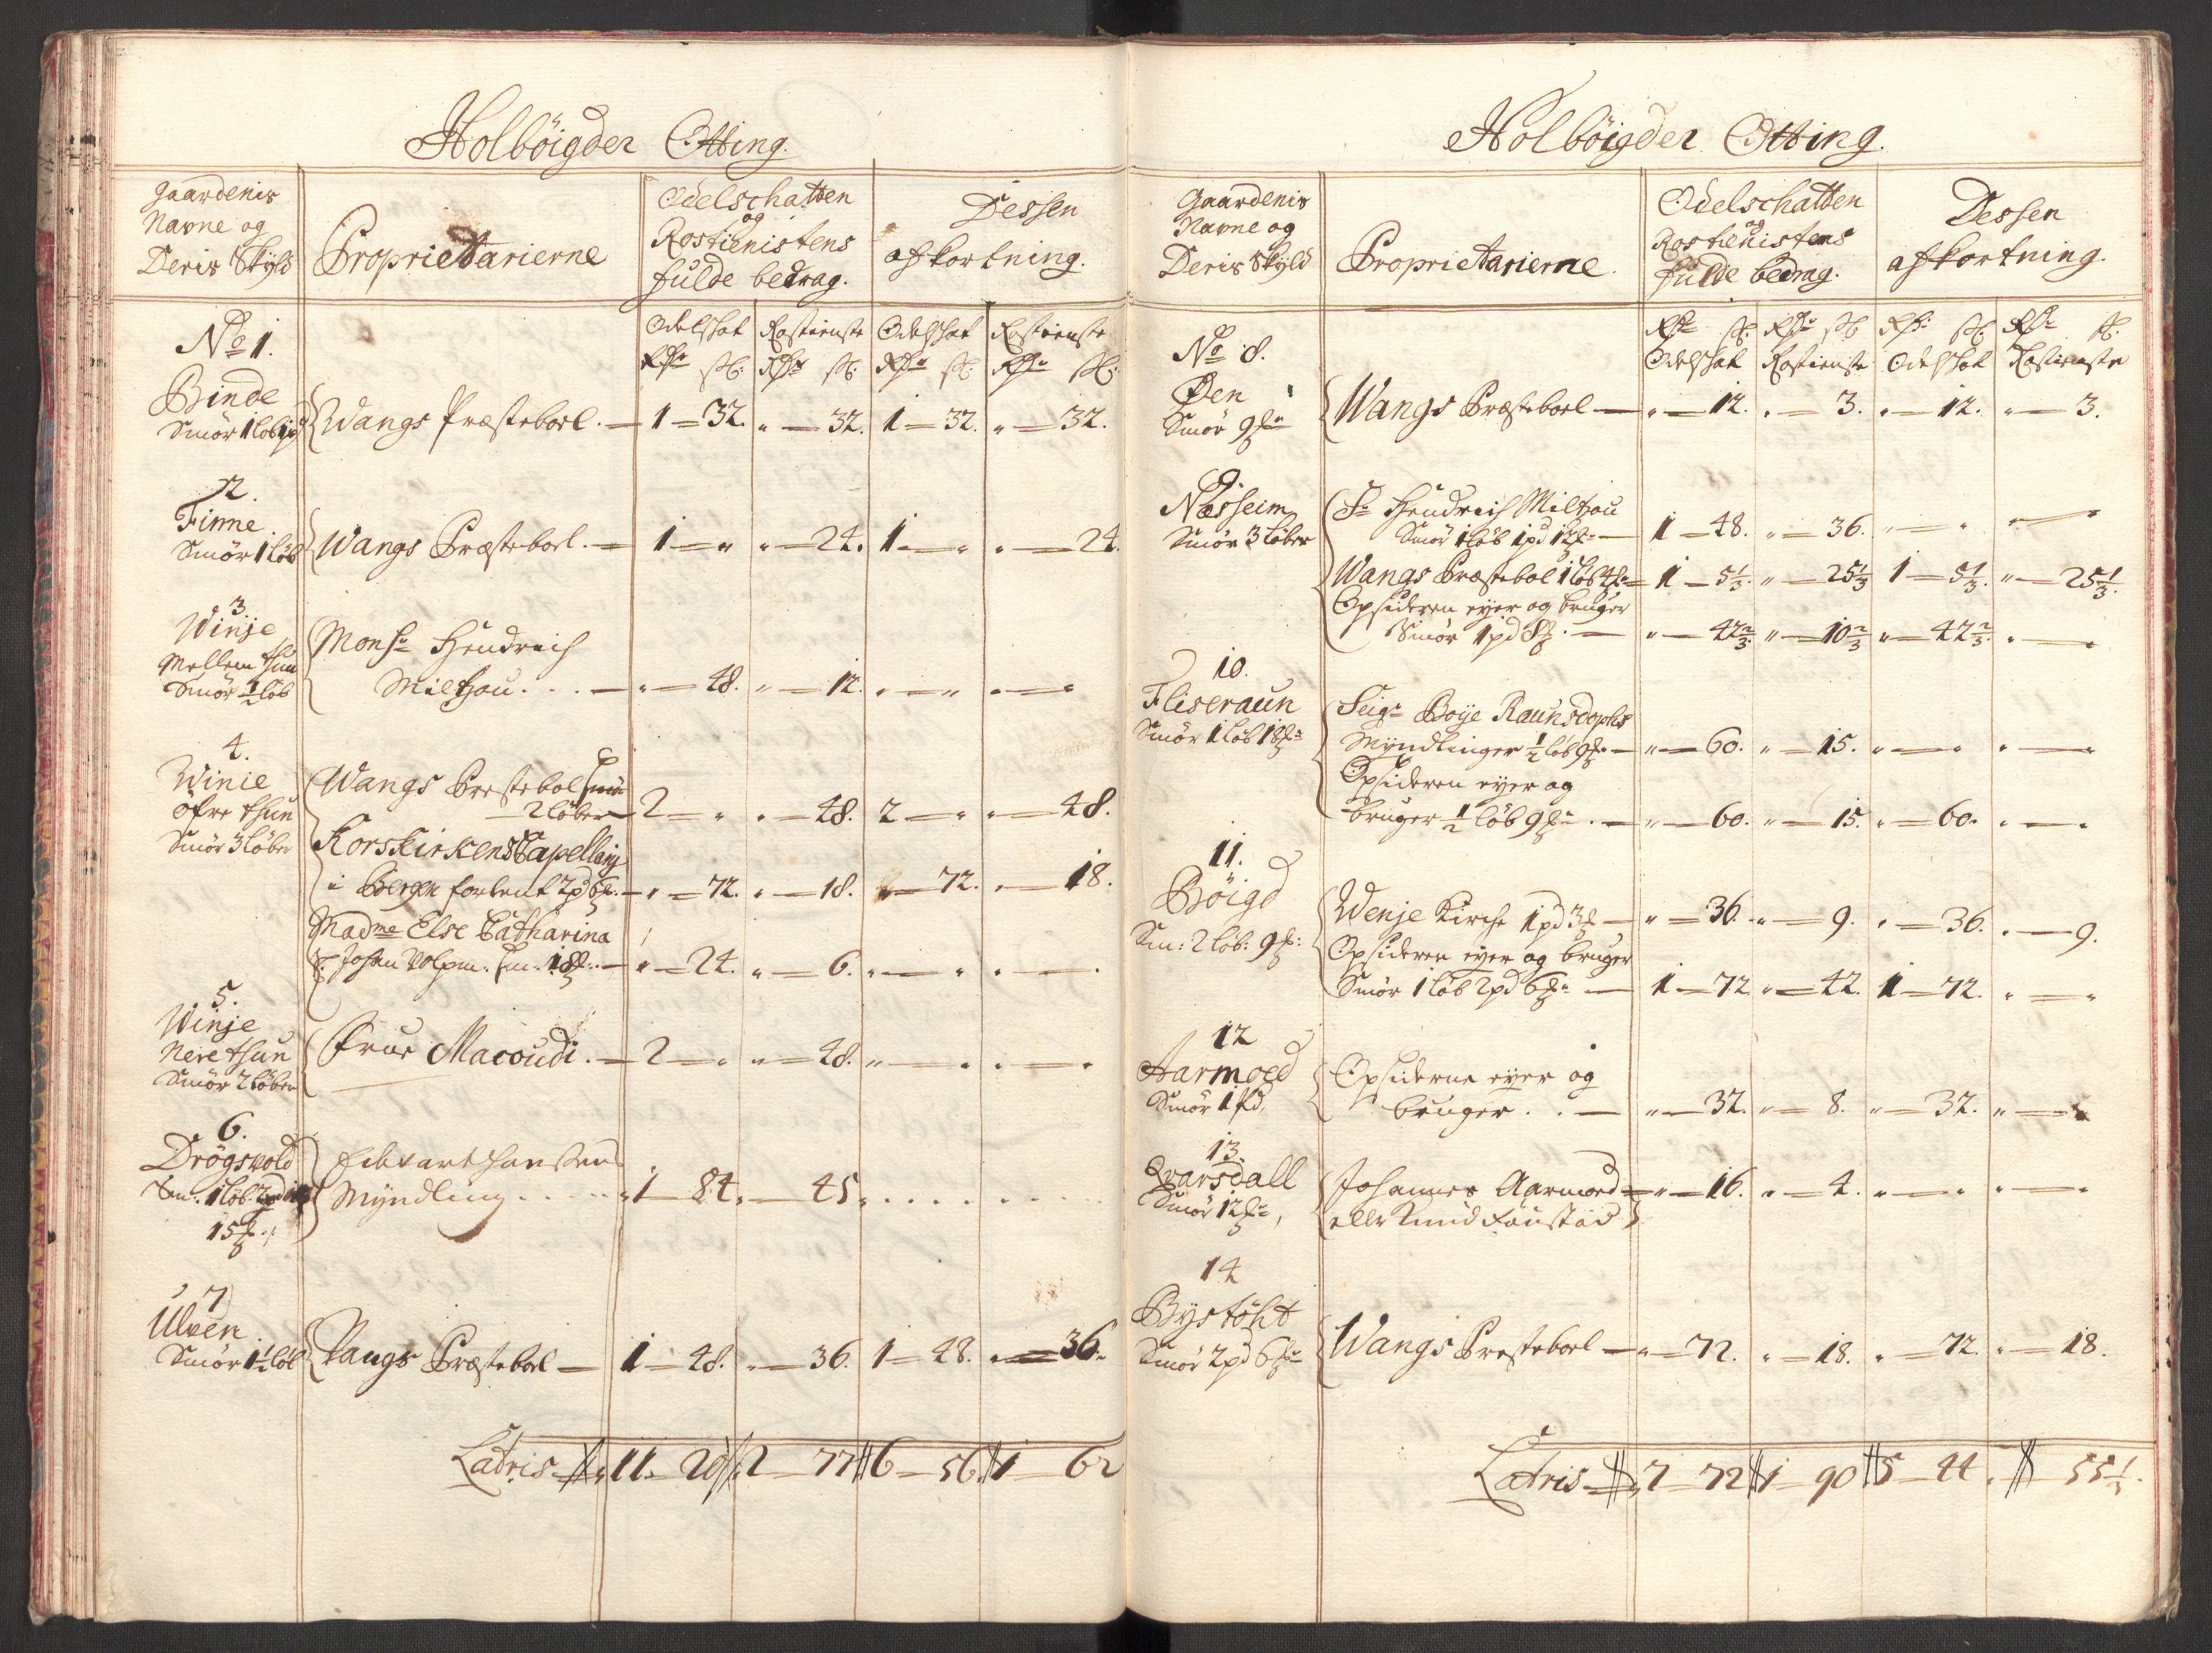 Holböigder Otting.
Gaardenis
Navne og
Deris Skyld
Proprietarierne
Odelschatten
og
Rostienistens
fulde bedrag.
Dessen
afkortning.
Odelskat Rostienste Odelskat Rostienste
Rdr ß: Rdr ß: Rdr ß: Rdr ß:
No 1.
Binde
Smör 1 löb 1 pd
Wangs Præsteboel. — 1 — 32. " — 32. 1 — 32. " — 32.
2.
Finne
Smör 1 löb
Wangs Præsteboel. — 1 — " " — 24. 1 — " " — 24.
3.
Winje
Mellem thun
Smör ½ löb
Monsr Hendrich
Milthou. . . — " — 48. " — 12. " — " " — "
4.
Winie
öfre thun
Smör 3 löber
Wangs Prestebol Smör
2 löber — 2 — " " — 48. 2 — " " — 48.
Korskirkens Capellanj
i Bergen forlent 2 pd 6 — " — 72. " — 18. " — 72. " — 18.
Madme Else Catharina
Johan Volpm. Sm. 18 — " — 24. " — 6. " — " " — "
5.
Winje
Nere thun
Smör 2 löber
Frue Macoudi. — 2 — " " — 48. " — " " — "
6.
Drögsvold
Sm. 1 löb 2 pd
15
Edvart Hansens
Myndling . . . . . 1 — 84. " — 45.
7
Ulven
Smör 1½ löb
Vangs Præsteboel — 1 — 48. " — 36. 1 — 48. " — 36.
Latris 11 — 20 2 — 77 6 — 56. 1 — 62
Holböigder Otting.
Gaardenis
Navne og
Deris Skyld
Proprietarierne.
Odelschatten
og
Rostienistens
fulde bedrag.
Dessen
afkortning.
Rdr ß. Rdr ß Rdr ß. Rdr ß.
Odelskat Rostienste Odelskat Rostienste
No 8.
Øen
Smör 9
Wangs Præsteboel — " — 12. " — 3. " — 12. " — 3.
9.
Næsheim
Smör 3 löber
Sr Hendrich Milthou
Smör 1 löb 1 pd 12 — 1 — 48. " — 36. " — " " — "
Wangs Præstebol 1 löb 4 — 1 — 5⅓. " — 25⅓ 1 — 5⅓. " — 25⅓.
Opsideren eyer og bruger
Smör 1 pd 8. — " — 42⅔. " — 10⅔ " — 42⅔. " — "
10.
Fliseraun
Smör 1 löb 18
Seigr Boye Raunsdophs
Myndlinger ½ löb 9 — " — 60. " — 15. " — " " — "
Opsideren eyer og
bruger ½ löb 9. — " — 60. " — 15. " — 60. " — "
11.
Böigd
Sm: 2 löb: 9
Wenje Kirche 1 pd 3 — " — 36. " — 9. " — 36. " — 9.
Opsideren eyer og bruger
Smör 1 löb 2 pd 6 — 1 — 72 " — 42. 1 — 72. " — "
12
Aarmoed
Smör 1 Pd,
Opsiderne eyer og
bruger. . — " — 32. " — 8. " — 32. " — "
13.
Qvarsdall
Smör 12
Johannes Aarmoed — " — 16. " — 4. " — " " — "
eller Knud Faustad
14
Bystöht
Smör 2 pd 6
Wangs Presteboel — " — 72. " — 18. " — 72. " — 18.
Latris 7 — 72 1 — 90 5 — 44. 55⅓.